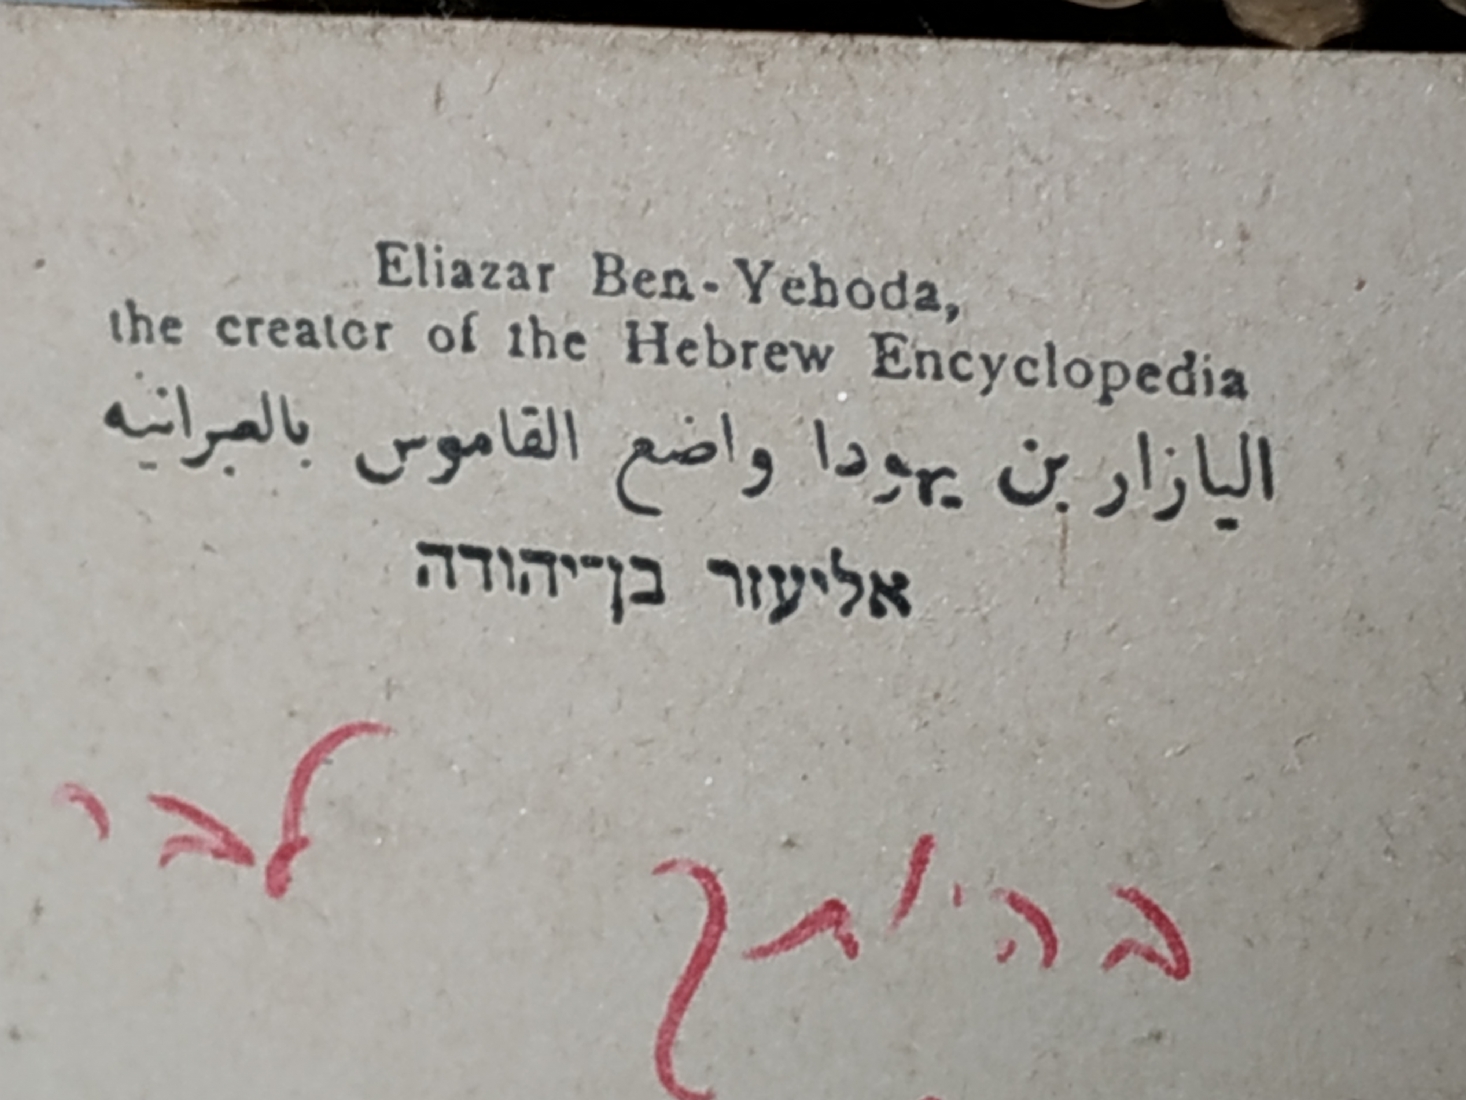 Eliazar Ben-Yehoda,
the creator of the Hebrew Encyclopedia
اليازار بن يهودا واضع القاموس بالعبرانيه
אליעזר בן־יהודה
לבי
בהיותך